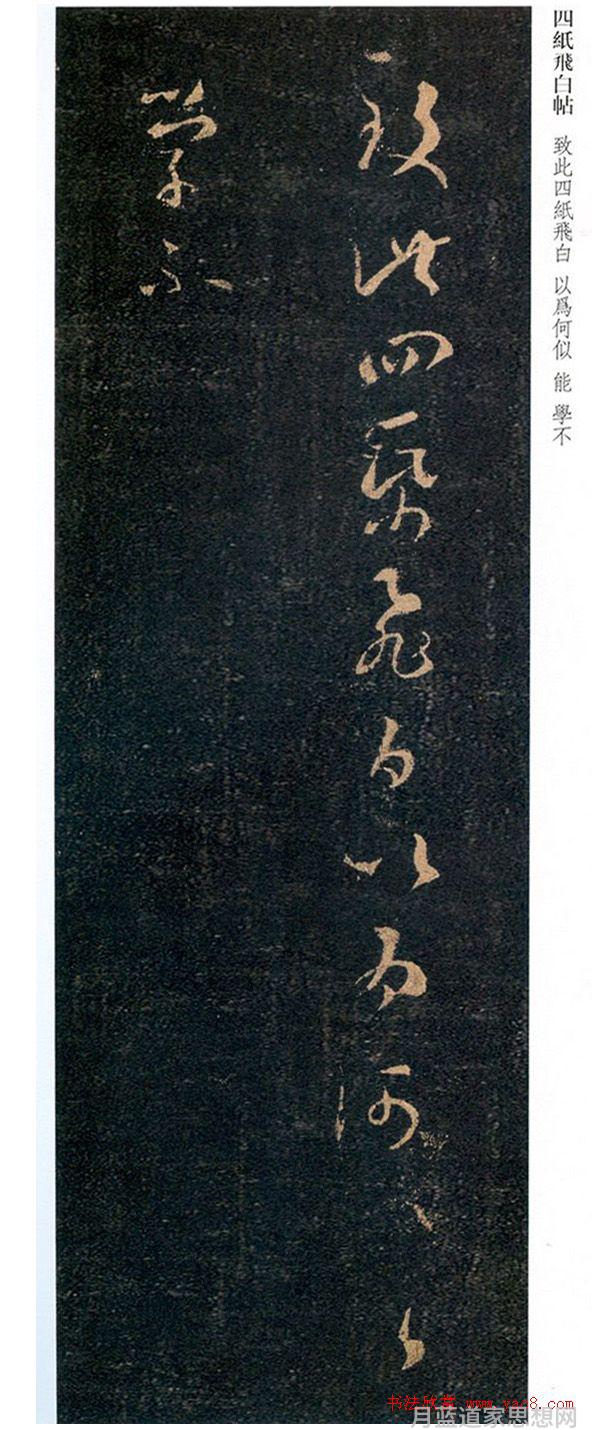 四紙飛白帖 致此四紙飛白 以爲何似 能 學不
致此四紙飛白以为何
学不
书法欣赏 www.yac8.com
月蓝道家思想网